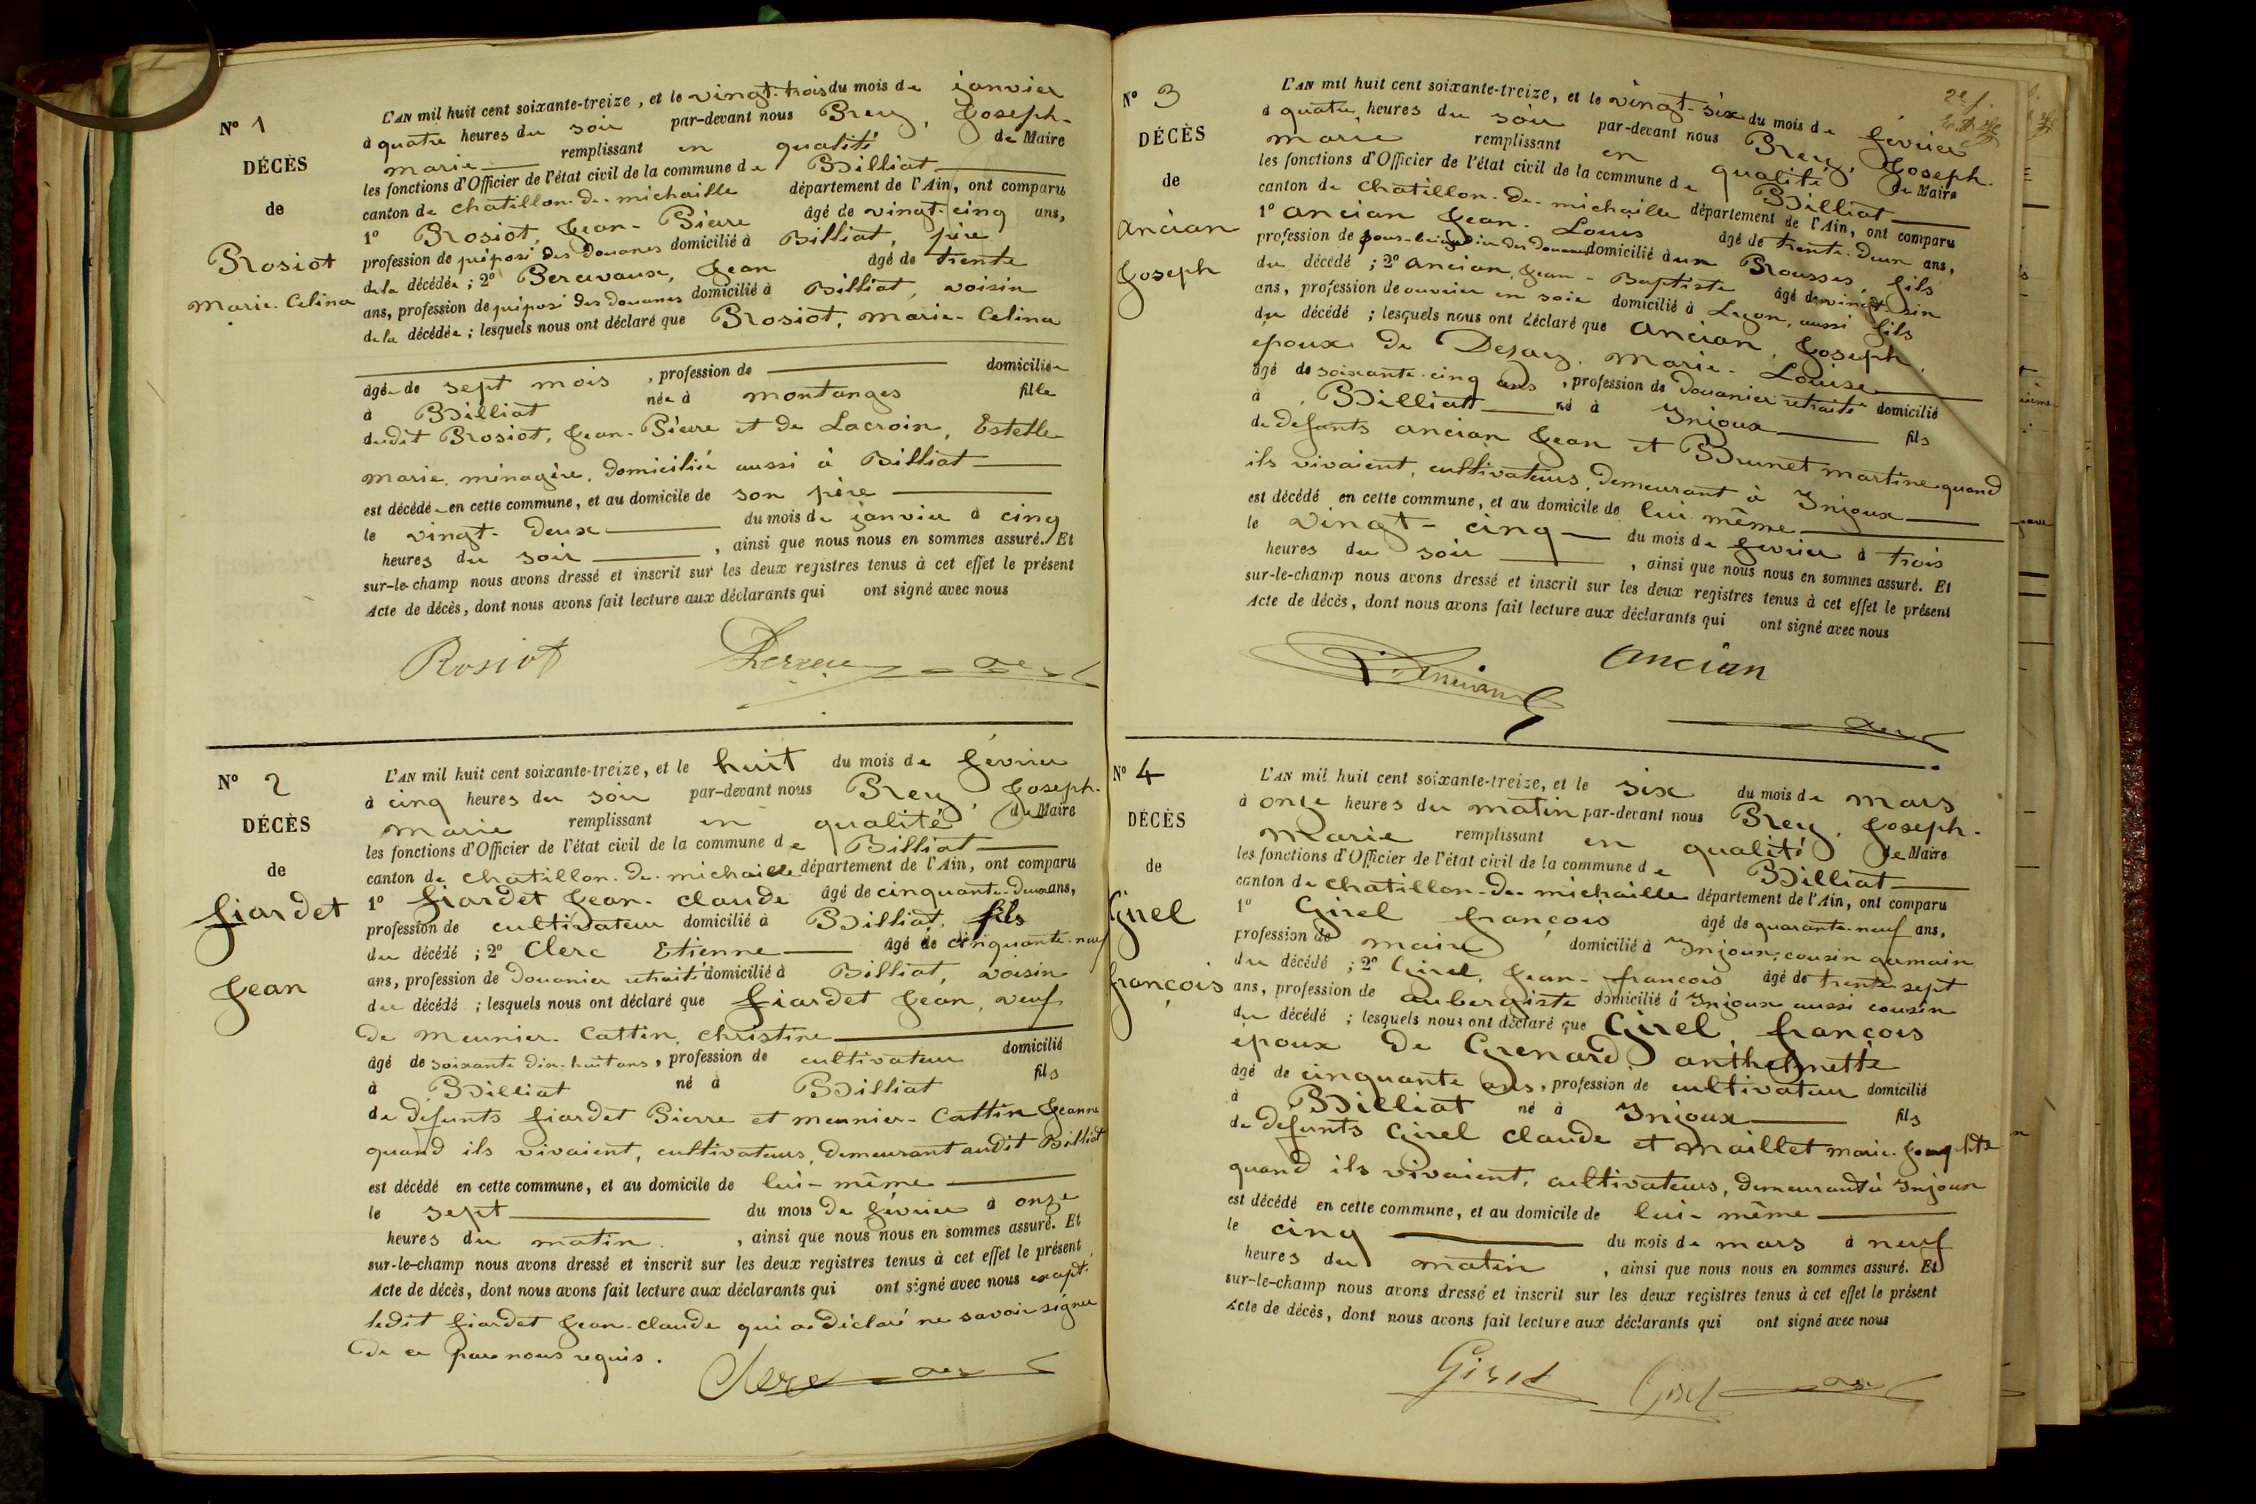 N° 1
DÉCÈS
de
Rosiot
Marie-Celina
L'AN mil huit cent soixante-treize, et le vingt-trois du mois de janvier
à quatre heures du soir par-devant nous Brey, Joseph-
Marie remplissant en qualité de Maire
les fonctions d'Officier de l'état civil de la commune de Billiat
canton de Chatillon-de-Michaille département de l'Ain, ont comparu
1° Rosiot, Jean-Pierre âgé de vingt-cinq ans,
profession de préposé des Douanes domicilié à Billiat, père
de la décédée ; 2° Jean âgé de trente
ans, profession de préposé des douanes domicilié à Billiat, voisin
de la décédée ; lesquels nous ont déclaré que Rosiot, Marie-Celina
âgée de sept mois, profession de domiciliée
à Billiat née à Montanges fille
dudit Rosiot, Jean-Pierre et de Lacroix, Estelle
Marie, ménagère, domiciliée aussi à Billiat
est décédée en cette commune, et au domicile de son père
le vingt-deux du mois de janvier à cinq
heures du soir, ainsi que nous nous en sommes assuré. Et
sur-le-champ nous avons dressé et inscrit sur les deux registres tenus à cet effet le présent
Acte de décès, dont nous avons fait lecture aux déclarants qui ont signé avec nous
Rosiot
N° 2
DÉCÈS
de
Fiardet
Jean
L'AN mil huit cent soixante-treize, et le huit du mois de février
à cinq heures du soir par-devant nous Brey, Joseph-
Marie remplissant en qualité de Maire
les fonctions d'Officier de l'état civil de la commune de Billiat
canton de Chatillon-de-Michaille département de l'Ain, ont comparu
1° Fiardet Jean-Claude âgé de cinquante-deux ans,
profession de cultivateur domicilié à Billiat, fils
du décédé ; 2° Clerc Etienne âgé de cinquante-neuf
ans, profession de Douanier retraité domicilié à Billiat, voisin
du décédé ; lesquels nous ont déclaré que Fiardet Jean, veuf
de Meunier-Cattin, Christine
âgé de soixante dix-huit ans, profession de cultivateur domicilié
à Billiat né à Billiat fils
de défunts Fiardet Pierre et Meunier-Cattin Jeanne
quand ils vivaient, cultivateurs, demeurant audit Billiat
est décédé en cette commune, et au domicile de lui-même
le sept du mois de février à onze
heures du matin, ainsi que nous nous en sommes assuré. Et
sur-le-champ nous avons dressé et inscrit sur les deux registres tenus à cet effet le présent
Acte de décès, dont nous avons fait lecture aux déclarants qui ont signé avec nous except.
ledit Fiardet Jean-Claude qui a déclaré ne savoir signer
de ce par nous requis.
Clerc
N° 3
DÉCÈS
de
Ancian
Joseph
L'AN mil huit cent soixante-treize, et le vingt-six du mois de février
à quatre heures du soir par-devant nous Brey, Joseph-
Marie remplissant en qualité de Maire
les fonctions d'Officier de l'état civil de la commune de Billiat
canton de Chatillon-de-Michaille département de l'Ain, ont comparu
1° Ancian Jean-Louis âgé de trente-deux ans,
profession de sous-brigadier des Douanes domicilié aux Rousses, fils
du décédé ; 2° Ancian, Jean-Baptiste âgé de vingt-six
ans, profession de ouvrier en soie domicilié à Lyon, aussi fils
du décédé ; lesquels nous ont déclaré que Ancian, Joseph,
époux de Marie-Louise
âgé de soixante-cinq ans, profession de Douanier retraité domicilié
à Billiat né à Injoux fils
de défunts Ancian Jean et Brunet Martine quand
ils vivaient, cultivateurs, demeurant à Injoux
est décédé en cette commune, et au domicile de lui même
le vingt-cinq du mois de février à trois
heures du soir, ainsi que nous nous en sommes assuré. Et
sur-le-champ nous avons dressé et inscrit sur les deux registres tenus à cet effet le présent
Acte de décès, dont nous avons fait lecture aux déclarants qui ont signé avec nous
Ancian
Ancian
N° 4
DÉCÈS
de
Girel
François
L'AN mil huit cent soixante-treize, et le six du mois de mars
à onze heures du matin par-devant nous Brey, Joseph-
Marie remplissant en qualité de Maire
les fonctions d'Officier de l'état civil de la commune de Billiat
canton de Chatillon-de-Michaille département de l'Ain, ont comparu
1° Girel François âgé de quarante-neuf ans,
profession de maire domicilié à Injoux, cousin germain
du décédé ; 2° Girel, Jean-François âgé de trente-sept
ans, profession de aubergiste domicilié à Injoux aussi cousin
du décédé ; lesquels nous ont déclaré que Girel François
époux de Grenard Anthelmette
âgé de cinquante ans, profession de cultivateur domicilié
à Billiat né à Injoux fils
de défunts Girel Claude et Maillet Marie-Josephte
quand ils vivaient, cultivateurs, demeurant à Injoux
est décédé en cette commune, et au domicile de lui-même
le cinq du mois de mars à neuf
heures du matin, ainsi que nous nous en sommes assuré. Et
sur-le-champ nous avons dressé et inscrit sur les deux registres tenus à cet effet le présent
Acte de décès, dont nous avons fait lecture aux déclarants qui ont signé avec nous
Girel Girel